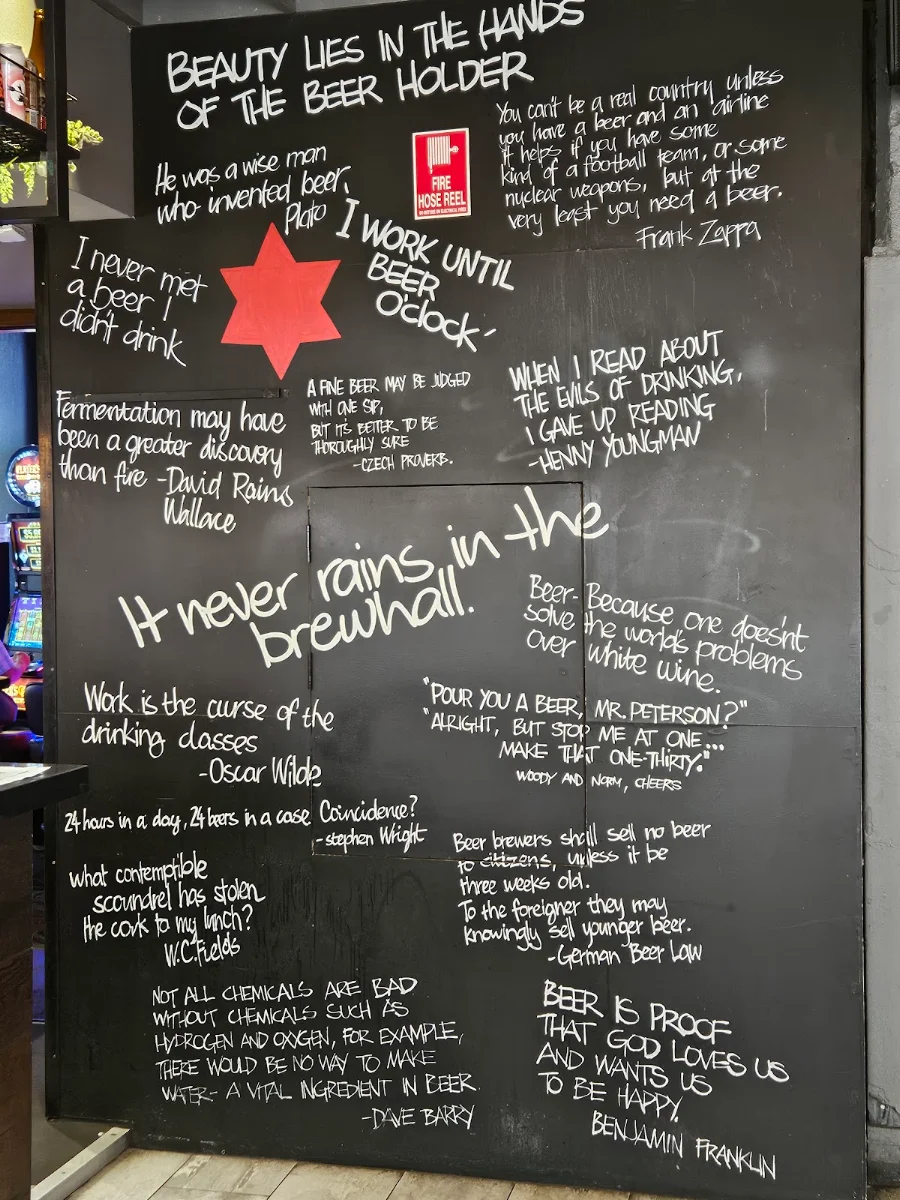 BEAUTY LIES IN THE HANDS
OF THE BEER HOLDER
You can't be a real country unless
you have a beer and an airline
It helps if you have some
kind of a football team, or some
nuclear weapons, but at the
very least you need a beer.
Frank Zappa
FIRE
HOSE REEL
He was a wise man
who invented beer.
Plato
I WORK UNTIL
BEER
O'clock
I never met
a beer I
didn't drink
A FINE BEER MAY BE JUDGED
WITH ONE SIP,
BUT IT'S BETTER TO BE
THOROUGHLY SURE
-CZECH PROVERB.
WHEN I READ ABOUT
THE EVILS OF DRINKING,
I GAVE UP READING
-HENNY YOUNGMAN
Fermentation may have
been a greater discovery
than fire -David Rains
Wallace
It never rains in the
brewhall.
Beer- Because one doesn't
solve the world's problems
over white wine.
Work is the curse of the
drinking classes
-Oscar Wilde
"POUR YOU A BEER, MR. PETERSON?"
"ALRIGHT, BUT STOP ME AT ONE...
MAKE THAT ONE-THIRTY."
WOODY AND NORM, CHEERS
24 hours in a day, 24 beers in a case. Coincidence?
-stephen Wright
Beer brewers shall sell no beer
to citizens, unless it be
three weeks old.
To the foreigner they may
knowingly sell younger beer.
-German Beer Law
what contemptible
scoundrel has stolen
the cork to my lunch?
W.C.Fields
NOT ALL CHEMICALS ARE BAD
WITHOUT CHEMICALS SUCH AS
HYDROGEN AND OXYGEN, FOR EXAMPLE,
THERE WOULD BE NO WAY TO MAKE
WATER- A VITAL INGREDIENT IN BEER.
-DAVE BARRY
BEER IS PROOF
THAT GOD LOVES US
AND WANTS US
TO BE HAPPY.
BENJAMIN FRANKLIN